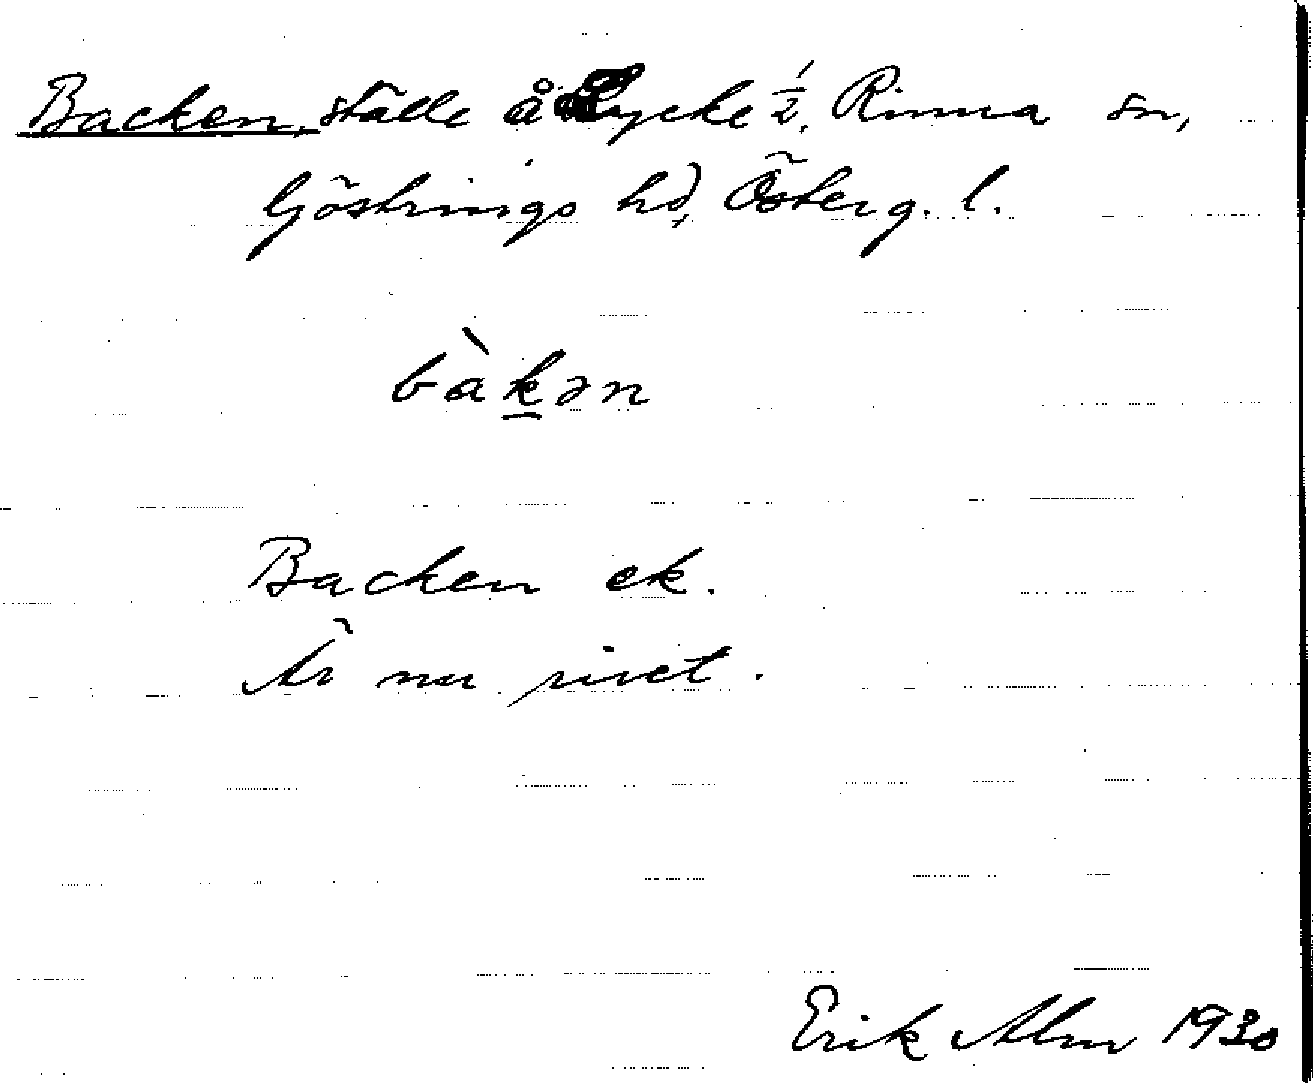 Backen, ställe å Lycke ½, Rinna sn,
Göstrings hd, Österg. l.
bàk̲ən
Backen ek.
Är nu rivet.
Erik Alm 1930